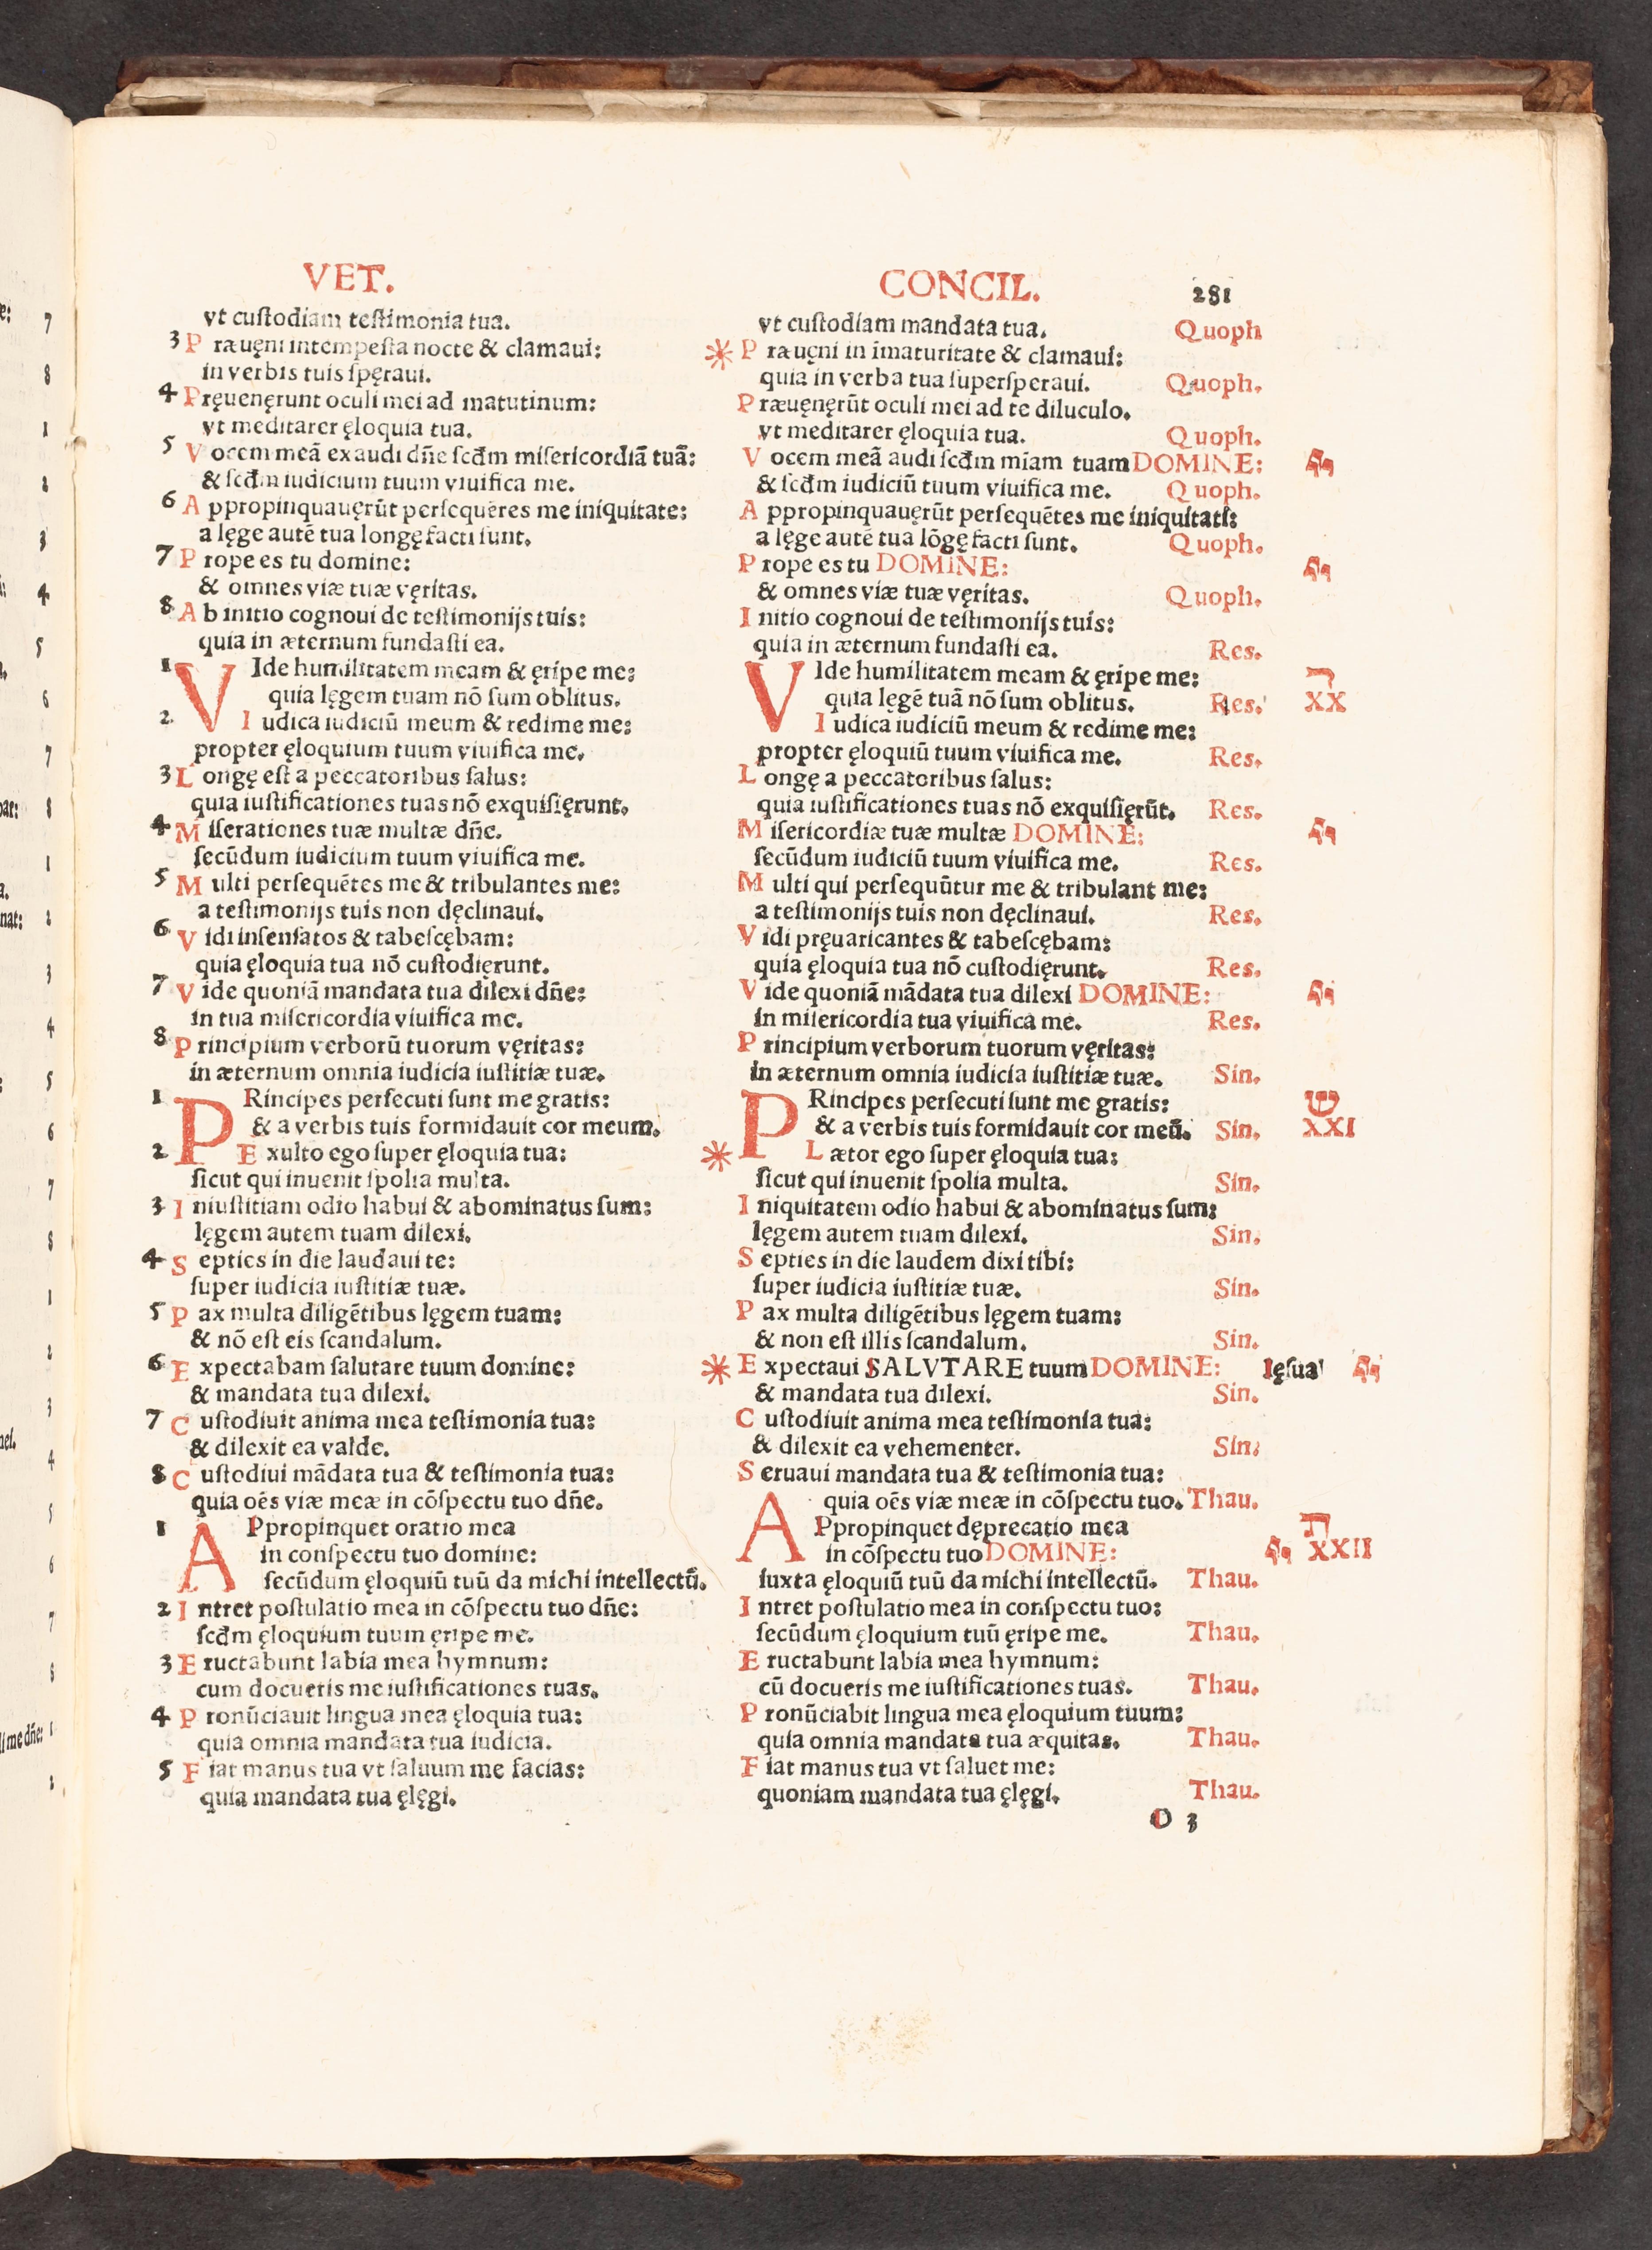 VET.
vt custodiam testimonia tua.
3 Præuęni intempesta nocte & clamaui:
in verbis tuis spęraui.
4 Pręuenęrunt oculi mei ad matutinum:
vt meditarer ęloquia tua.
5 Vocem meā exaudi dñe scđm misericordiā tuā:
& scđm iudicium tuum viuifica me.
6 Appropinquauęrūt persequēres me iniquitate:
a lęge autē tua longę facti sunt.
7 Prope es tu domine:
& omnes viæ tuæ vęritas.
8 Ab initio cognoui de testimonijs tuis:
quia in æternum fundasti ea.
1 VIde humilitatem meam & ęripe me:
quia lęgem tuam nō sum oblitus.
2 Iudica iudiciū meum & redime me:
propter ęloquium tuum viuifica me.
3 Longę est a peccatoribus salus:
quia iustificationes tuas nō exquisięrunt.
4 Miserationes tuæ multæ dñe.
secūdum iudicium tuum viuifica me.
5 Multi persequētes me & tribulantes me:
a testimonijs tuis non dęclinaui.
6 Vidi insensatos & tabescębam:
quia ęloquia tua nō custodięrunt.
7 Vide quoniā mandata tua dilexi dñe:
in tua misericordia viuifica me.
8 Principium verborū tuorum vęritas:
in æternum omnia iudicia iustitiæ tuæ.
1 PRincipes persecuti sunt me gratis:
& a verbis tuis formidauit cor meum.
2 Exulto ego super ęloquia tua:
sicut qui inuenit spolia multa.
3 Iniustitiam odio habui & abominatus sum:
lęgem autem tuam dilexi.
4 Septies in die laudaui te:
super iudicia iustitiæ tuæ.
5 Pax multa diligētibus lęgem tuam:
& nō est eis scandalum.
6 Expectabam salutare tuum domine:
& mandata tua dilexi.
7 Custodiuit anima mea testimonia tua:
& dilexit ea valde.
8 Custodiui mādata tua & testimonia tua:
quia oēs viæ meæ in cōspectu tuo dñe.
1 APpropinquet oratio mea
in conspectu tuo domine:
secūdum ęloquiū tuū da michi intellectū.
2 Intret postulatio mea in cōspectu tuo dñe:
scđm ęloquium tuum ęripe me.
3 Eructabunt labia mea hymnum:
cum docueris me iustificationes tuas.
4 Pronūciauit lingua mea ęloquia tua:
quia omnia mandata tua iudicia.
5 Fiat manus tua vt saluum me facias:
quia mandata tua ęlęgi.
CONCIL. 281
vt custodiam mandata tua. Quoph
* Præuęni in īmaturitate & clamaui:
quia in verba tua supersperaui. Quoph.
Præuęnęrūt oculi mei ad te diluculo.
vt meditarer ęloquia tua. Quoph.
Vocem meā audi scđm miam tuam DOMINE:
& scđm iudiciū tuum viuifica me. Quoph.
Appropinquauęrūt persequētes me iniquitati:
a lęge autē tua lōgę facti sunt. Quoph.
Prope es tu DOMINE:
& omnes viæ tuæ vęritas. Quoph.
Initio cognoui de testimonijs tuis:
quia in æternum fundasti ea. Res.
VIde humilitatem meam & ęripe me: ר
quia lęgē tuā nō sum oblitus. Res. XX
Iudica iudiciū meum & redime me:
propter ęloquiū tuum viuifica me. Res.
Longę a peccatoribus salus:
quia iustificationes tuas nō exquisięrūt. Res.
Misericordiæ tuæ multæ DOMINE:
secūdum iudiciū tuum viuifica me. Res.
Multi qui persequūtur me & tribulant me:
a testimonijs tuis non dęclinaui. Res.
Vidi pręuaricantes & tabescębam:
quia ęloquia tua nō custodięrunt. Res.
Vide quoniā mādata tua dilexi DOMINE:
in misericordia tua viuifica me. Res.
Principium verborum tuorum vęritas:
in æternum omnia iudicia iustitiæ tuæ. Sin.
PRincipes persecuti sunt me gratis: ש
& a verbis tuis formidauit cor meū. Sin. XXI
* Lætor ego super ęloquia tua:
sicut qui inuenit spolia multa. Sin.
Iniquitatem odio habui & abominatus sum:
lęgem autem tuam dilexi. Sin.
Septies in die laudem dixi tibi:
super iudicia iustitiæ tuæ. Sin.
Pax multa diligētibus lęgem tuam:
& non est illis scandalum. Sin.
* Expectaui SALVTARE tuum DOMINE: Ięsua
& mandata tua dilexi. Sin.
Custodiuit anima mea testimonia tua:
& dilexit ea vehementer. Sin.
Seruaui mandata tua & testimonia tua:
quia oēs viæ meæ in cōspectu tuo. Thau.
APpropinquet dęprecatio mea ת
in cōspectu tuo DOMINE: XXII
iuxta ęloquiū tuū da michi intellectū. Thau.
Intret postulatio mea in conspectu tuo:
secūdum ęloquium tuū ęripe me. Thau.
Eructabunt labia mea hymnum:
cū docueris me iustificationes tuas. Thau.
Pronūciabit lingua mea ęloquium tuum:
quia omnia mandata tua æquitas. Thau.
Fiat manus tua vt saluet me:
quoniam mandata tua ęlęgi. Thau.
O 3